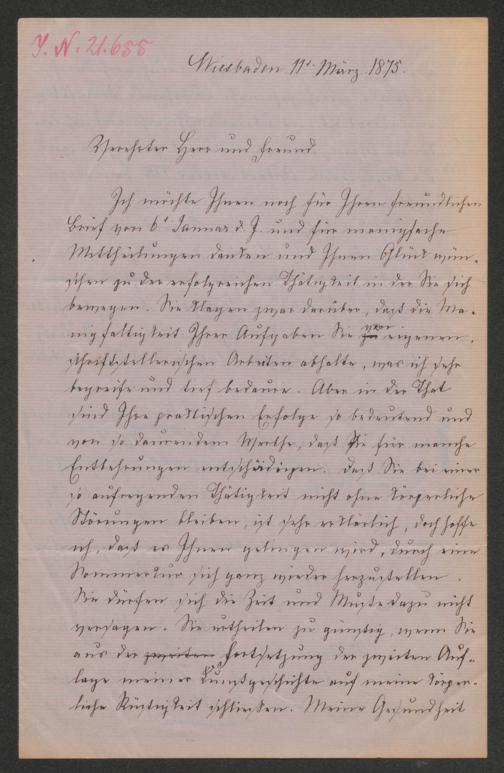 J. N. 21.655
Wiesbaden 11t. März 1875.
Verehrter Herr und Freund
Ich möchte Ihnen noch für Ihren freundlichen
Brief vom 6t Januar d. J. und für manigfache
Mittheilungen danken und Ihnen Glück wün-
schen zu der erfolgreichen Thätigkeit in der Sie sich
bewegen. Sie klagen zwar darüber, daß die Ma-
nigfaltigkeit Ihrer Aufgaben Sie von eigenen
schriftstellerischen Arbeiten abhalte, was ich sehr
begreife und tief bedaure. Aber in der That
sind Ihre praktischen Erfolge so bedeutend und
von so dauerndem Werthe, daß sie für manche
Entbehrungen entschädigen. Daß Sie bei einer
so aufregenden Thätigkeit nicht ohne körperliche
Störungen bleiben, ist sehr erklärlich, doch hoffe
ich, daß es Ihnen gelingen wird, durch eine
Sommerkur sich ganz wieder herzustellen.
Sie dürfen sich die Zeit und Muße dazu nicht
versagen. Sie urtheilen zu günstig, wenn Sie
aus der zweiten Fortsetzung der zweiten Auf-
lage meiner Kunstgeschichte auf meine körper-
liche Rüstigkeit schließen. Meine Gesundheit